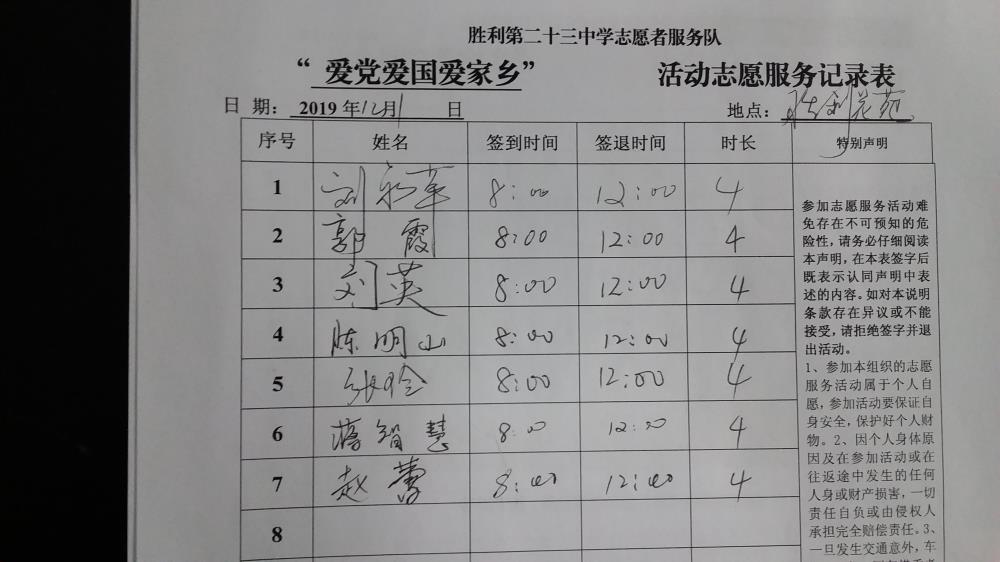 胜利第二十三中学志愿者服务队
“ 爱党爱国爱家乡” 活动志愿服务记录表
日 期: 2019 年12月1 日 地点: 胜利花苑
序号 姓名 签到时间 签退时间 时长 特别声明
1 刘 8:00 12:00 4
2 郭霞 8:00 12:00 4
3 刘英 8:00 12:00 4
4 陈明山 8:00 12:00 4
5 张玲 8:00 12:00 4
6 蒋智慧 8:00 12:00 4
7 赵蕾 8:00 12:00 4
8
参加志愿服务活动难
免存在不可预知的危
险性,请务必仔细阅读
本声明,在本表签字后
既表示认同声明中表
述的内容。如对本说明
条款存在异议或不能
接受,请拒绝签字并退
出活动。
1、参加本组织的志愿
服务活动属于个人自
愿,参加活动要保证自
身安全,保护好个人财
物。2、因个人身体原
因及在参加活动或在
往返途中发生的任何
人身或财产损害,一切
责任自负或由侵权人
承担完全赔偿责任。3、
一旦发生交通意外,车